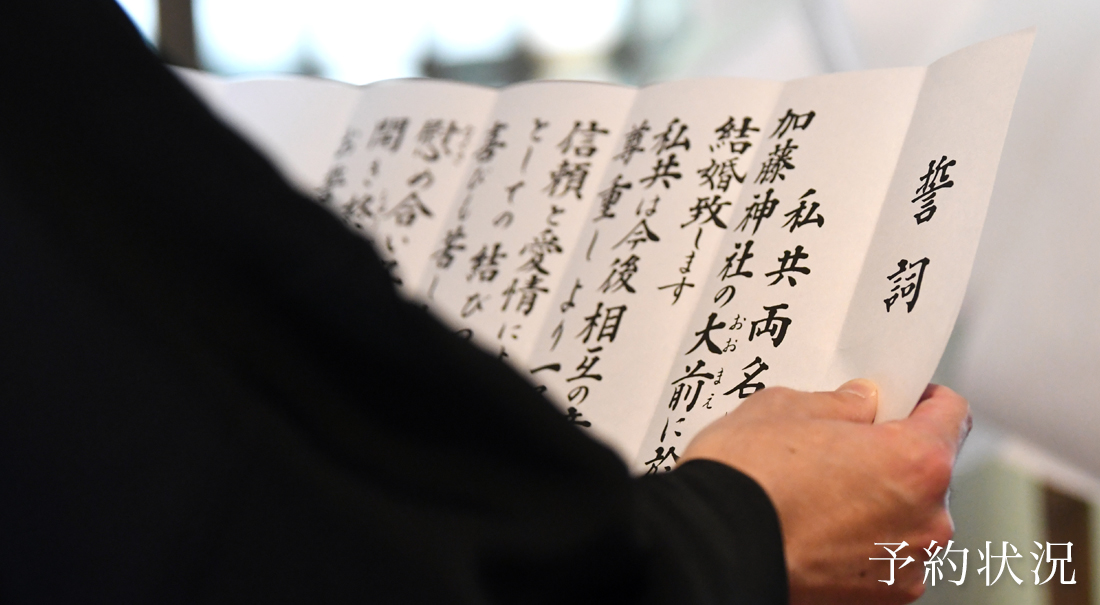 誓詞
私共両名
加藤神社の大前に於
おおまえ
結婚致します
私共は今後相互の
尊重し より一
信頼と愛情によ
としての結びの
喜びも苦し
合い
予約状況